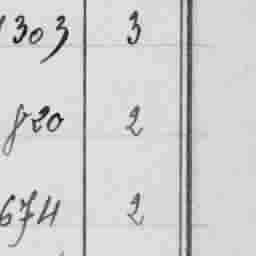 1303 3
820 2
674 2